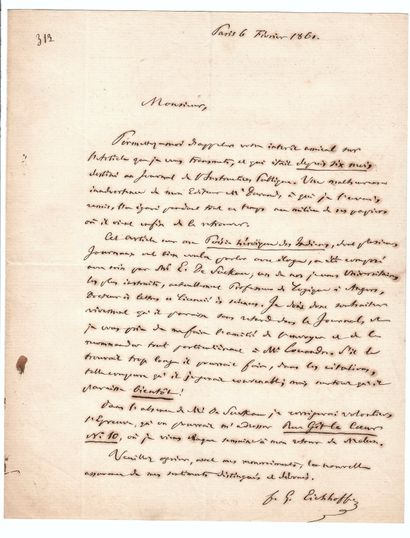 313
Paris 6 Février 1861.
Monsieur,
Permettez-moi d'appeler votre intérêt amical sur
l'article que je vous transmets, et qui était depuis six mois
destiné au Journal de l'Instruction Publique. Une malheureuse
inadvertance de mon Editeur Mr Durand, à qui je l'avais
remis, l'a égaré pendant tout ce temps au milieu de ses papiers
où il vient enfin de le retrouver.
Cet article sur ma Poésie héroïque des Indiens, dont plusieurs
Journaux ont bien voulu parler avec éloge, a été composé
avec soin par Mr E. De un de nos jeunes Universitaires
les plus instruits, actuellement Professeur de Logique à Angers,
Docteur ès lettres et Licencié ès sciences. Je dois donc souhaiter
vivement qu'il paraisse sans retard dans le Journal, et
je vous prie de me faire l'amitié de l'envoyer et de le
recommander tout particulièrement à Mr Louandre. S'il le
trouvait trop long il pourrait faire, dans les citations,
telle coupure qu'il jugerait convenable; mais surtout qu'il
paraisse bientôt!
Dans l'absence de Mr De je corrigerai volontiers
l'Epreuve, qu'on pourrait m'adresser Rue Gît-le-Coeur
No 10, où je viens chaque semaine à mon retour de Melun.
Veuillez agréer, avec mes remerciments, la nouvelle
assurance de mes sentiments distingués et dévoués.
F. G. Eichhoff